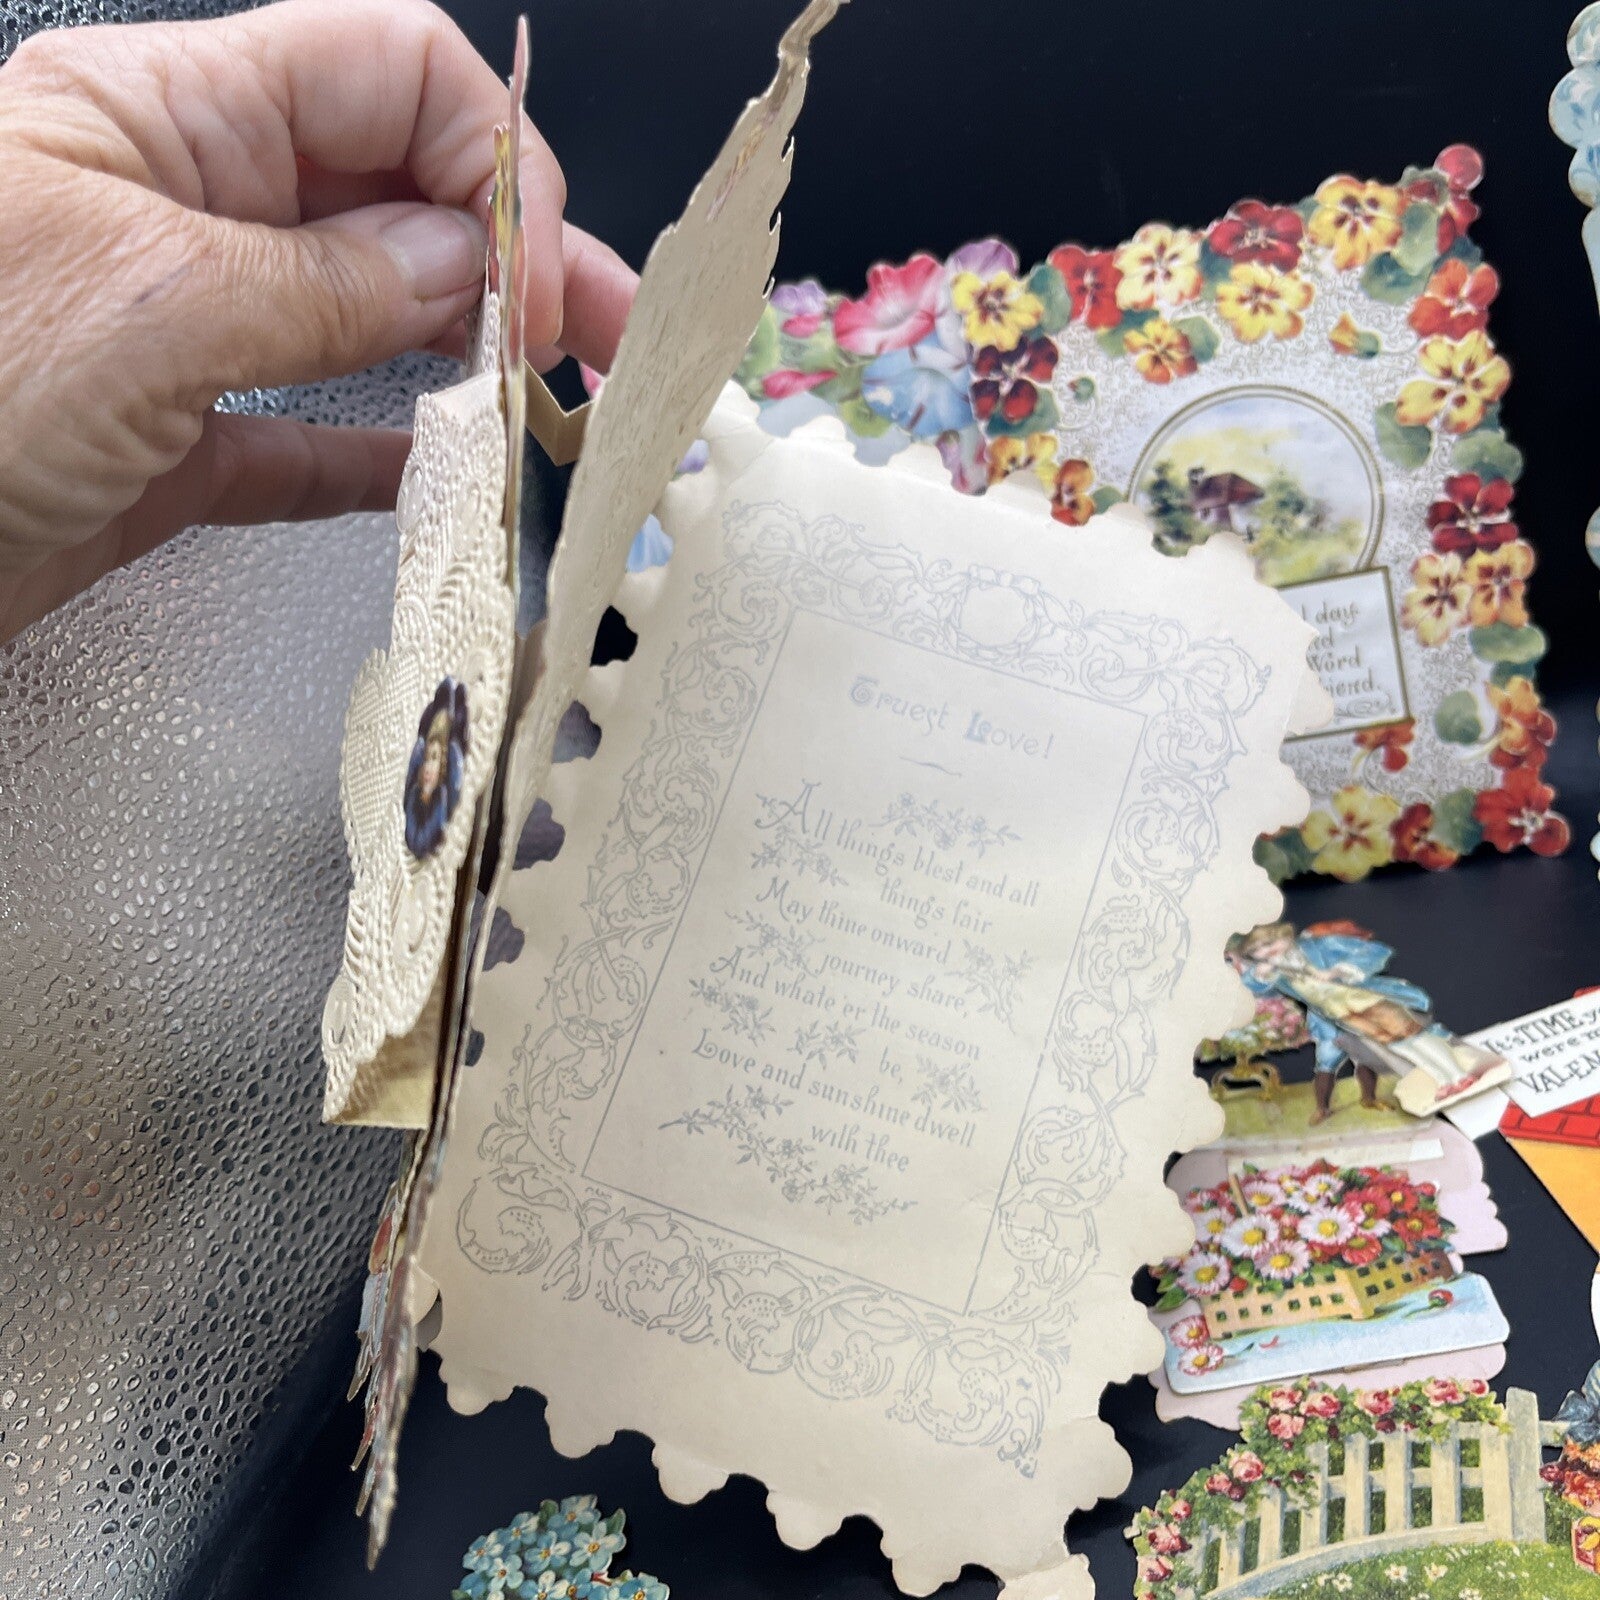 Truest Love!
All things blest and all
things fair
May thine onward
journey share,
And whate'er the season
be,
Love and sunshine dwell
with thee
day
Word
It's TIME
were